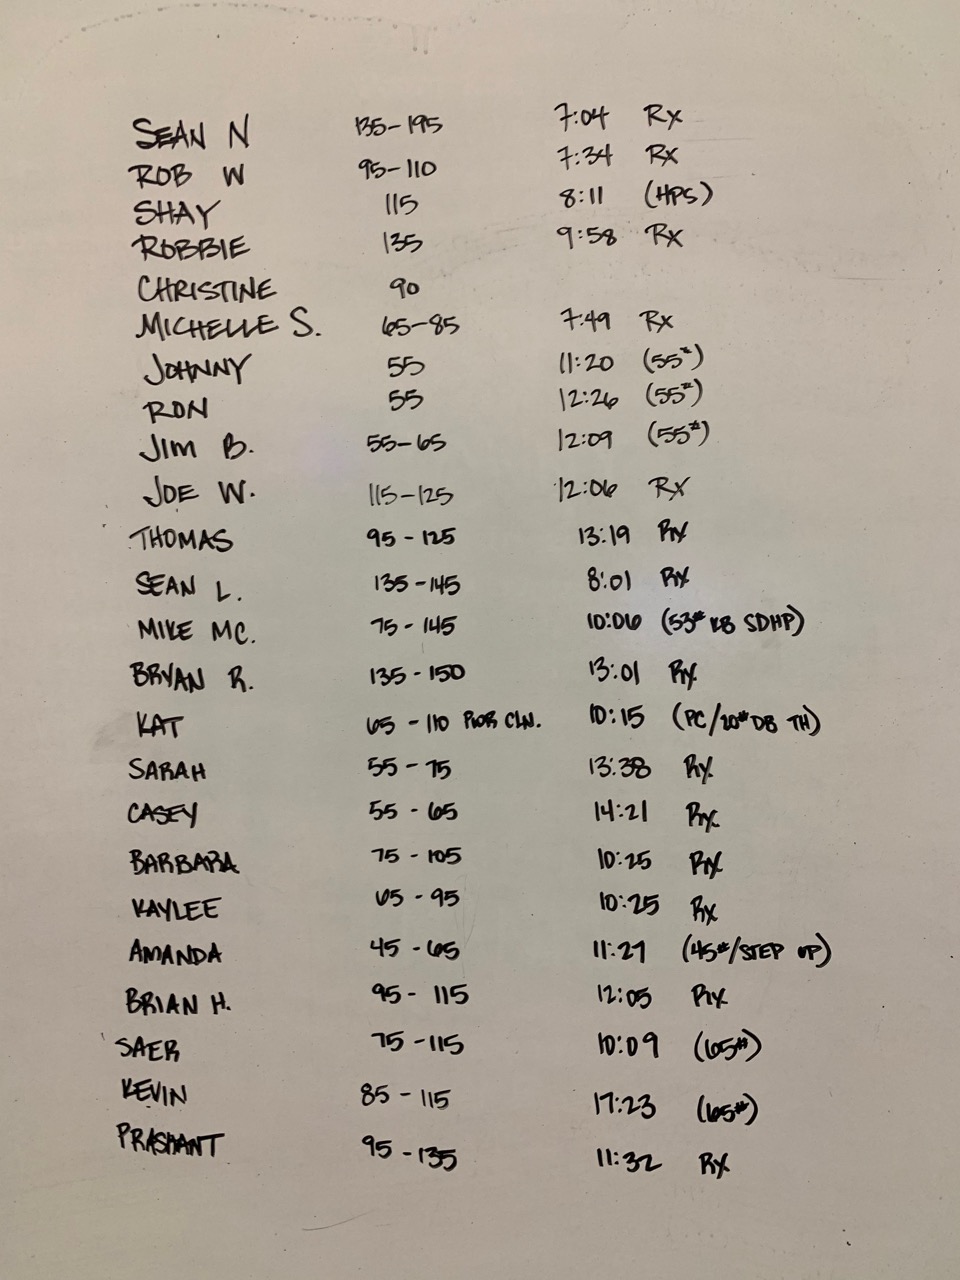 SEAN N 135-195 7:04 Rx
ROB W 95-110 7:34 Rx
SHAY 115 8:11 (HPS)
ROBBIE 135 9:58 Rx
CHRISTINE 90
MICHELLE S. 65-85 7:49 Rx
JOHNNY 55 11:20 (55#)
RON 55 12:26 (55#)
JIM B. 55-65 12:09 (55#)
JOE W. 115-125 12:06 Rx
THOMAS 95-125 13:19 Rx
SEAN L. 135-145 8:01 Rx
MIKE MC. 75-145 10:06 (53# KB SDHP)
BRYAN R. 135-150 13:01 Rx
KAT 65-110 PWR CLN. 10:15 (PC/20# DB TH)
SARAH 55-75 13:38 Rx
CASEY 55-65 14:21 Rx
BARBARA 75-105 10:25 Rx
KAYLEE 65-95 10:25 Rx
AMANDA 45-65 11:27 (45#/STEP UP)
BRIAN H. 95-115 12:05 Rx
SAER 75-115 10:09 (65#)
KEVIN 85-115 17:23 (65#)
PRASHANT 95-135 11:32 Rx